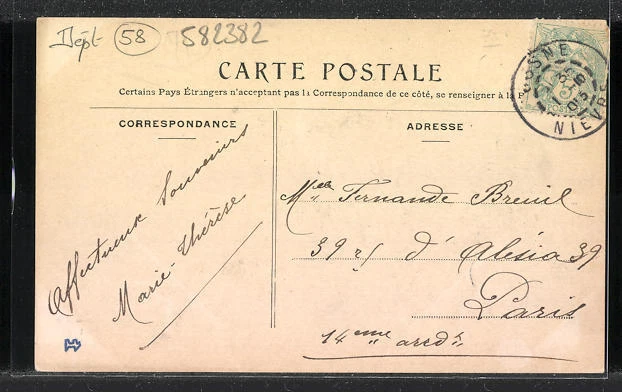 Dépt 58 582382
CARTE POSTALE
Certains Pays Étrangers n'acceptant pas la Correspondance de ce côté, se renseigner à la P
CORRESPONDANCE
Affectueux Souvenirs
Marie-Thérèse
ADRESSE
Mlle Fernande Breuil
39 r. d'Alésia 39
Paris
14eme arrdt
COSNE
NIEVRE